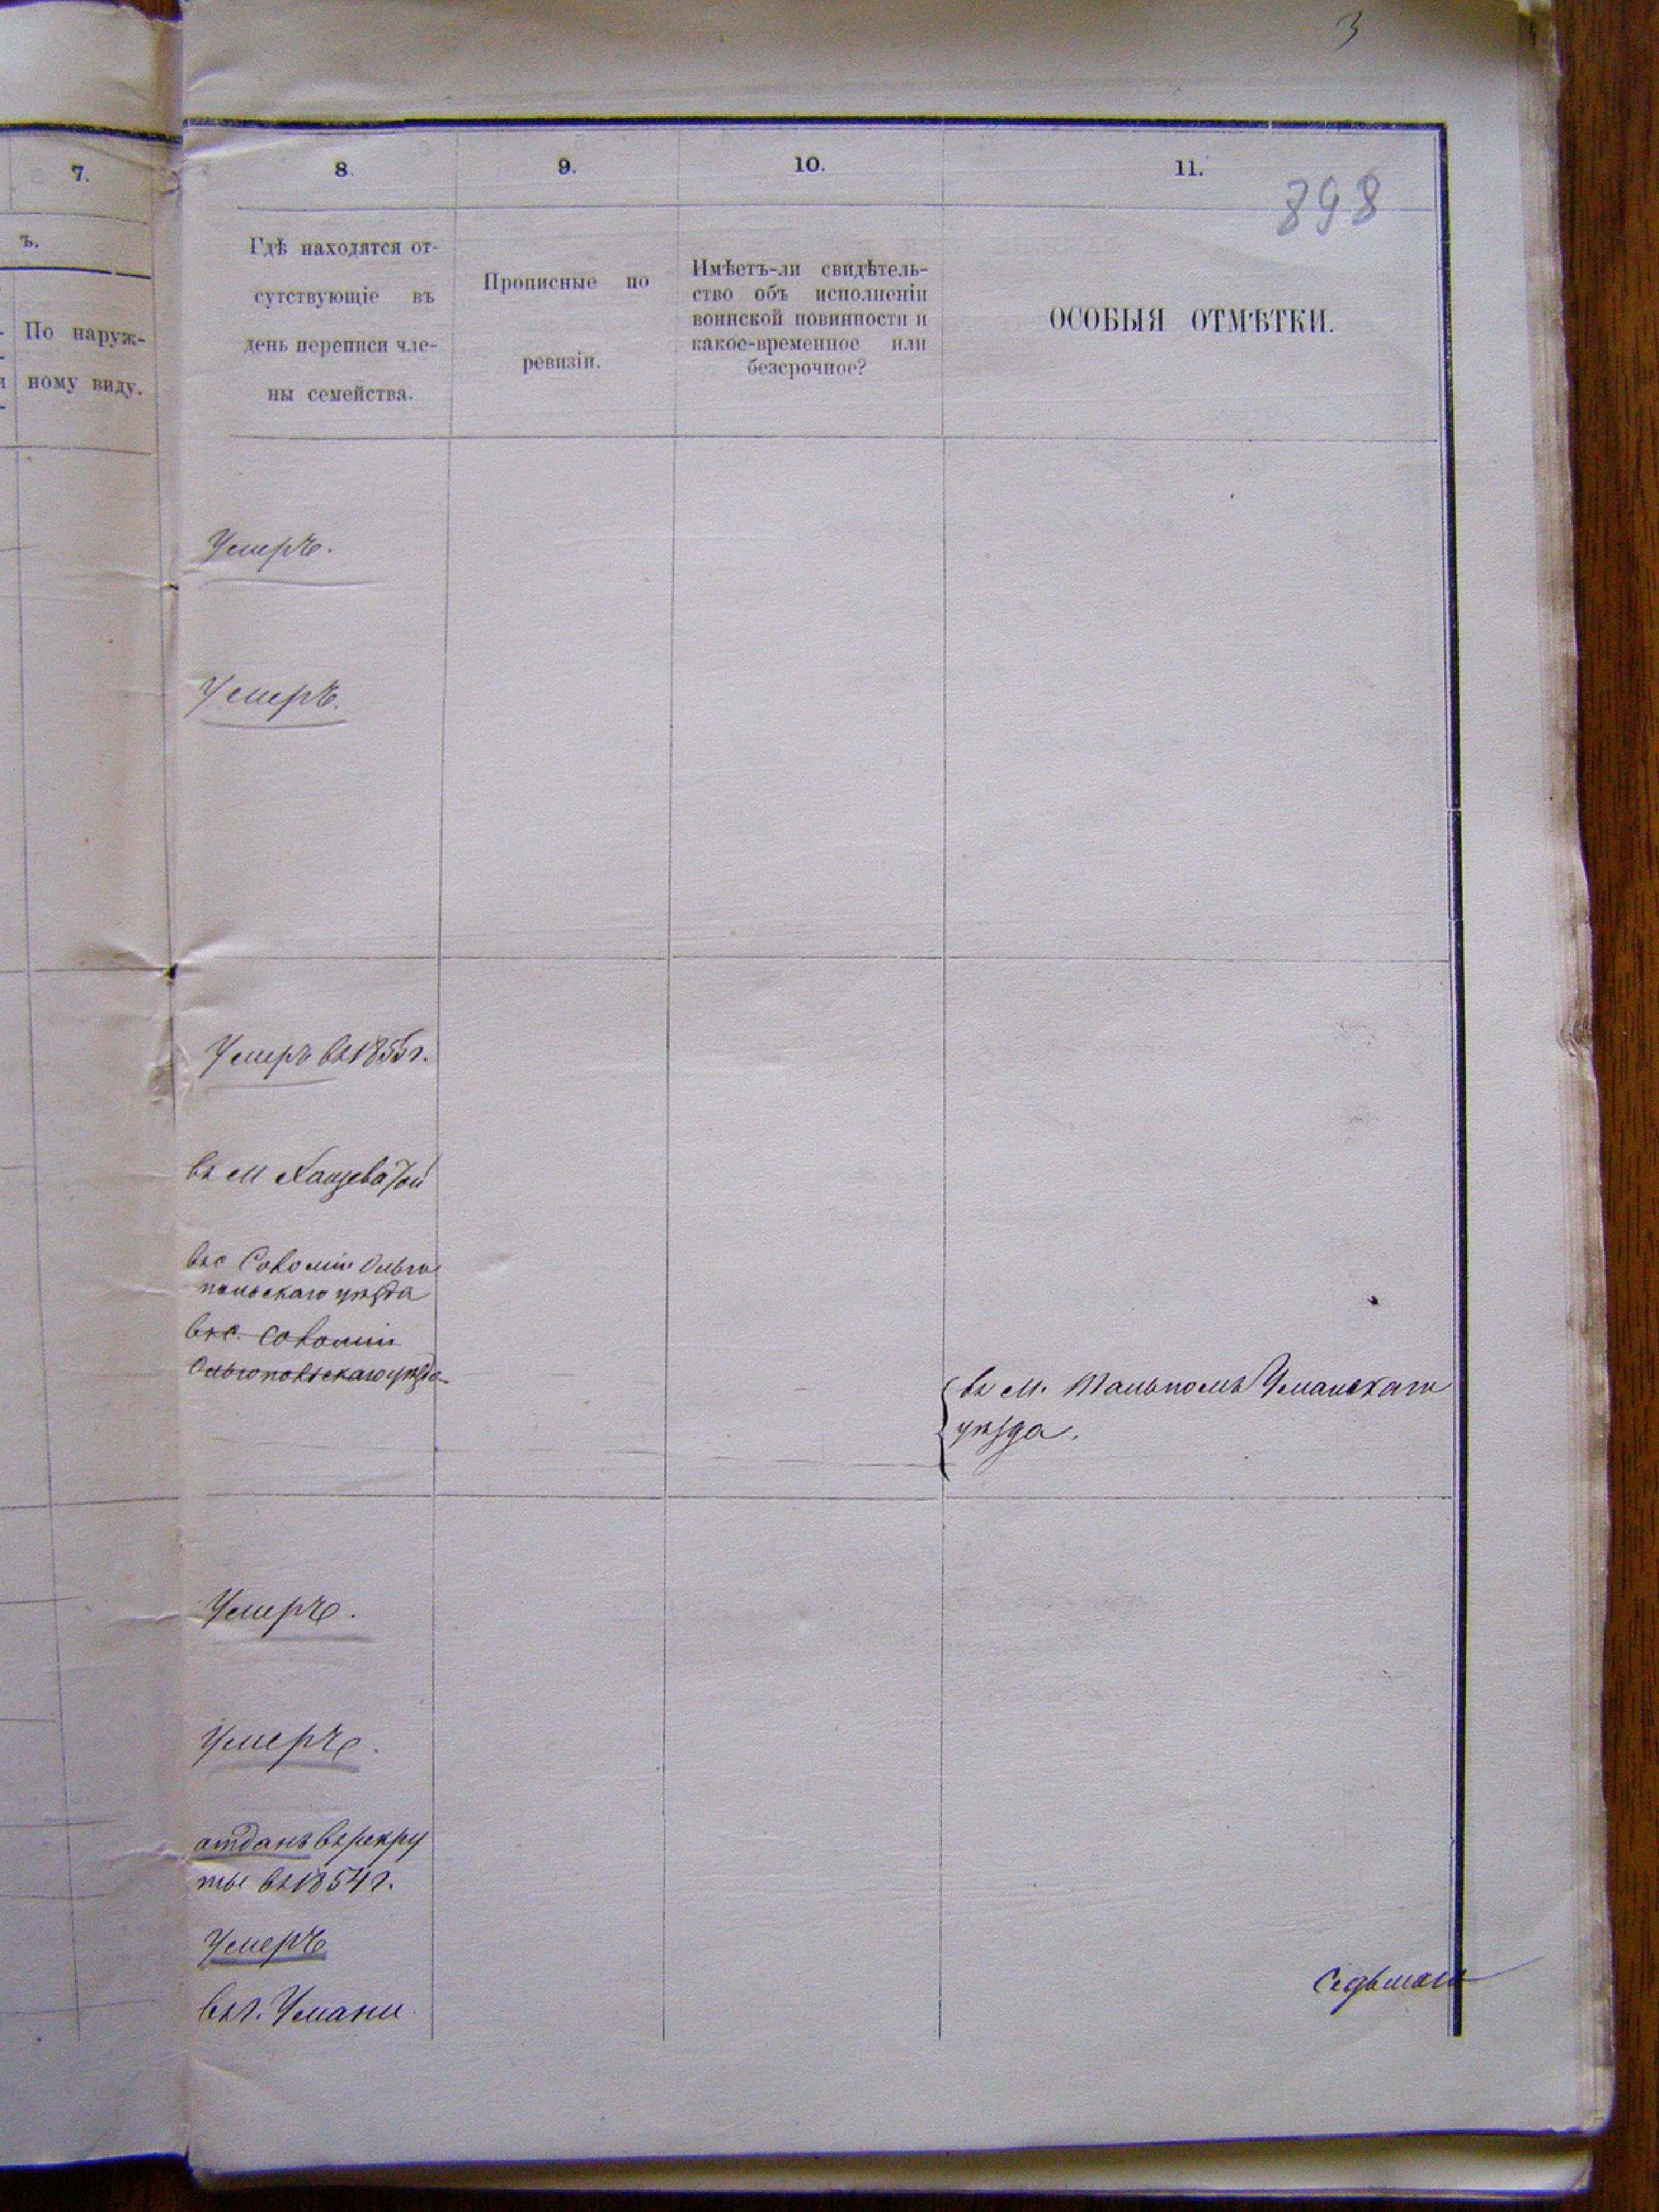 3
7.
8.
9.
10.
11.
898
ъ.
По наруж-
ному виду.
Гдѣ находятся от-
сутствующіе въ
день переписи чле-
ны семейства.
Прописные по
ревизіи.
Имѣетъ-ли свидѣтель-
ство объ исполненіи
воинской повинности и
какое-временное или
безсрочное?
ОСОБЫЯ ОТМѢТКИ.
Умеръ.
Умеръ.
Умеръ въ 1855 г.
въ м Хащеватой
въ с Ольго
польскаго уѣзда
въ с.
Ольгопольскаго уѣзда
въ м. Тальномъ Уманскаго
уѣзда.
Умеръ.
Умеръ.
отданъ въ рекру
ты въ 1854 г.
Умеръ
въ г. Умани